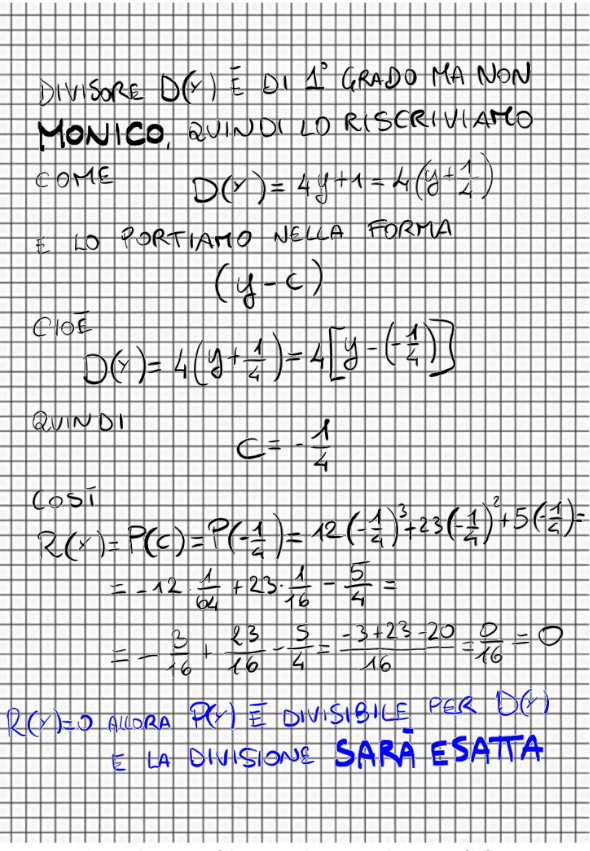 DIVISORE D(Y) È DI 1° GRADO MA NON
MONICO, QUINDI LO RISCRIVIAMO
COME D(Y) = 4y+1 = 4(y+1/4)
E LO PORTIAMO NELLA FORMA
(y-c)
CIOÈ
D(Y) = 4(y+1/4) = 4[y-(-1/4)]
QUINDI
C = -1/4
COSÌ
R(Y) = P(C) = P(-1/4) = 12(-1/4)³+23(-1/4)²+5(-1/4) =
= -12 · 1/64 + 23 · 1/16 - 5/4 =
= -3/16 + 23/16 - 5/4 = (-3+23-20)/16 = 0/16 = 0
R(Y)=0 ALLORA P(Y) È DIVISIBILE PER D(Y)
E LA DIVISIONE SARÀ ESATTA